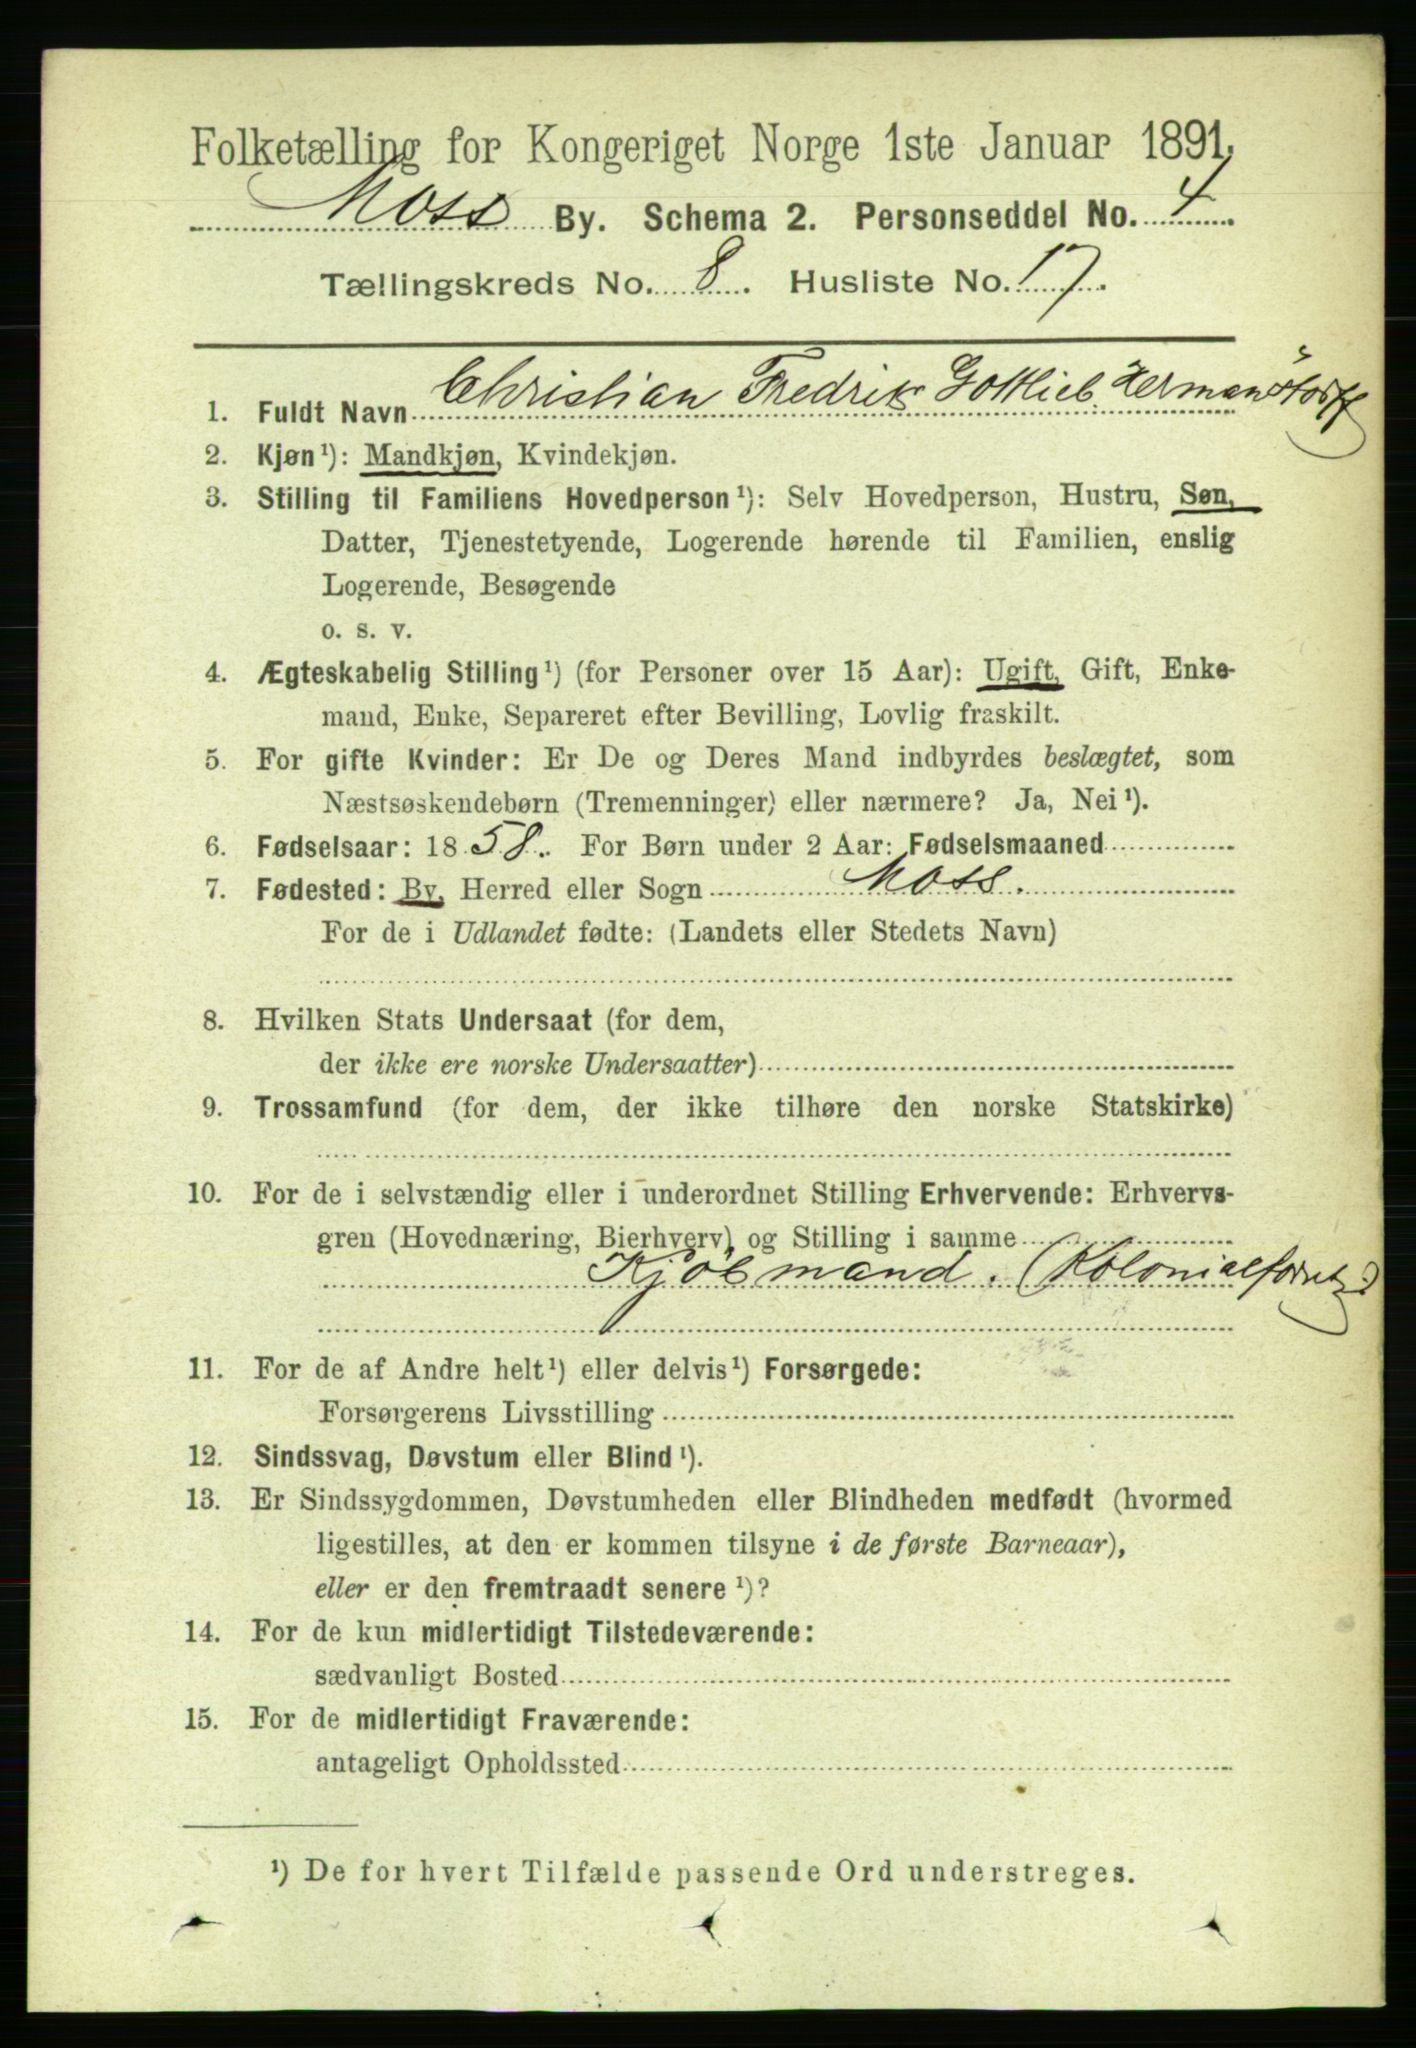 Folketælling for Kongeriget Norge 1ste Januar 1891.
Moss By. Schema 2. Personseddel No. 4
Tællingskreds No. 8. Husliste No. 17.
1. Fuldt Navn Christian Fredrik Gottlieb Hermanstorff
2. Kjøn¹): Mandkjøn, Kvindekjøn.
3. Stilling til Familiens Hovedperson¹): Selv Hovedperson, Hustru, Søn,
Datter, Tjenestetyende, Logerende hørende til Familien, enslig
Logerende, Besøgende
o. s. v.
4. Ægteskabelig Stilling¹) (for Personer over 15 Aar): Ugift, Gift, Enke-
mand, Enke, Separeret efter Bevilling, Lovlig fraskilt.
5. For gifte Kvinder: Er De og Deres Mand indbyrdes beslægtet, som
Næstsøskendebørn (Tremenninger) eller nærmere? Ja, Nei¹).
6. Fødselsaar: 1858. For Børn under 2 Aar: Fødselsmaaned
7. Fødested: By, Herred eller Sogn Moss.
For de i Udlandet fødte: (Landets eller Stedets Navn)
8. Hvilken Stats Undersaat (for dem,
der ikke ere norske Undersaatter)
9. Trossamfund (for dem, der ikke tilhøre den norske Statskirke)
10. For de i selvstændig eller i underordnet Stilling Erhvervende: Erhvervs-
gren (Hovednæring, Bierhverv) og Stilling i samme
Kjøbmand. (Kolonialforretn.)
11. For de af Andre helt¹) eller delvis¹) Forsørgede:
Forsørgerens Livsstilling
12. Sindssvag, Døvstum eller Blind¹).
13. Er Sindssygdommen, Døvstumheden eller Blindheden medfødt (hvormed
ligestilles, at den er kommen tilsyne i de første Barneaar),
eller er den fremtraadt senere¹)?
14. For de kun midlertidigt Tilstedeværende:
sædvanligt Bosted
15. For de midlertidigt Fraværende:
antageligt Opholdssted
¹) De for hvert Tilfælde passende Ord understreges.